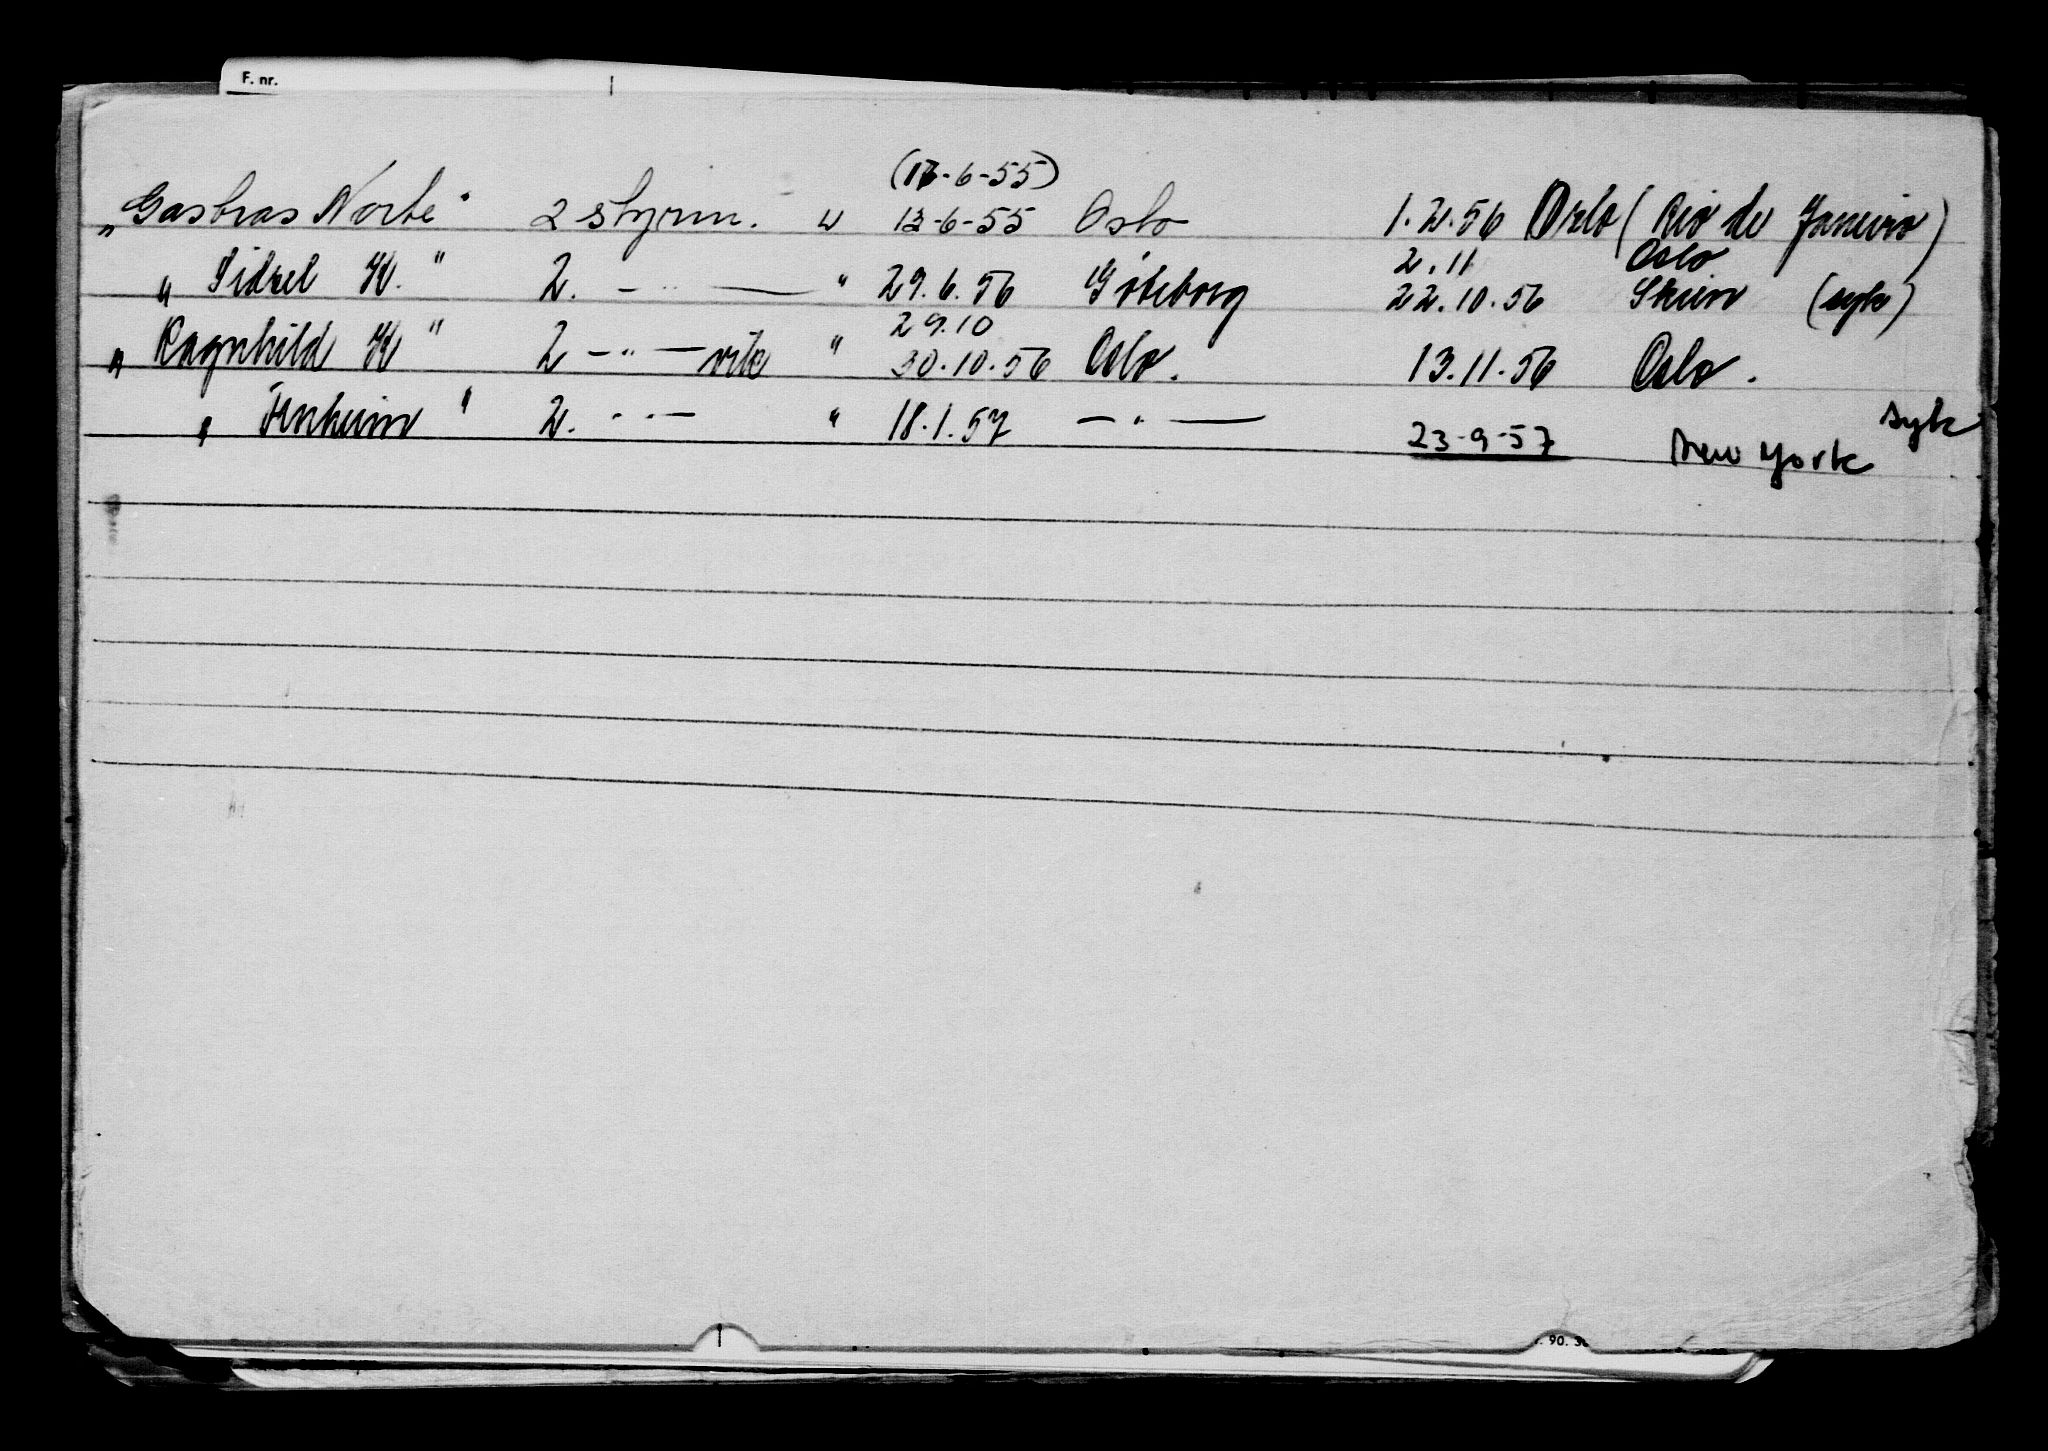 F. nr.
(17-6-55)
"Gasbras Norte" 2 styrm. " 13-6-55 Oslo 1.2.56 Oslo (Rio de Janeiro)
2.11 Oslo
" Sidsel K. " 2. - " - " 29.6.56 Göteborg 22.10.56 Skien (syk)
29.10
" Ragnhild K " 2 - " - vik " 30.10.56 Oslo. 13.11.56 Oslo.
" " 2. - " - " 18.1.57 - " - 23-9-57 New York syk
. 90. 3